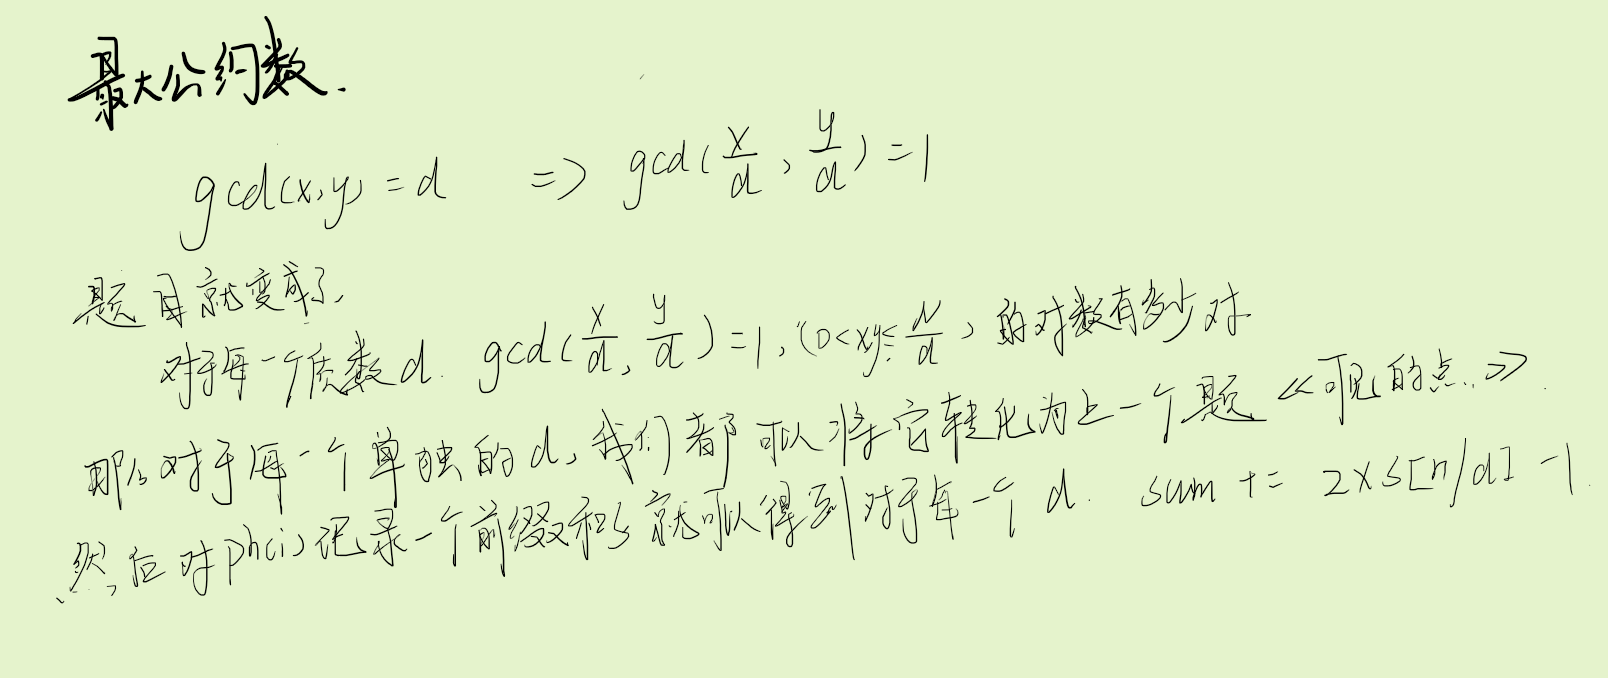 最大公约数.
gcd(x,y) = d => gcd(x/d, y/d) = 1
题目就变成了,
对于每一个质数d. gcd(x/d, y/d) = 1, (0<xy≤N/d) 的对数有多少对.
那么对于每一个单独的d, 我们都可以将它转化为上一个题《可见的点..》.
然后对ph(i)记录一个前缀和s就可以得到对于每一个d. sum += 2×s[n/d] -1.